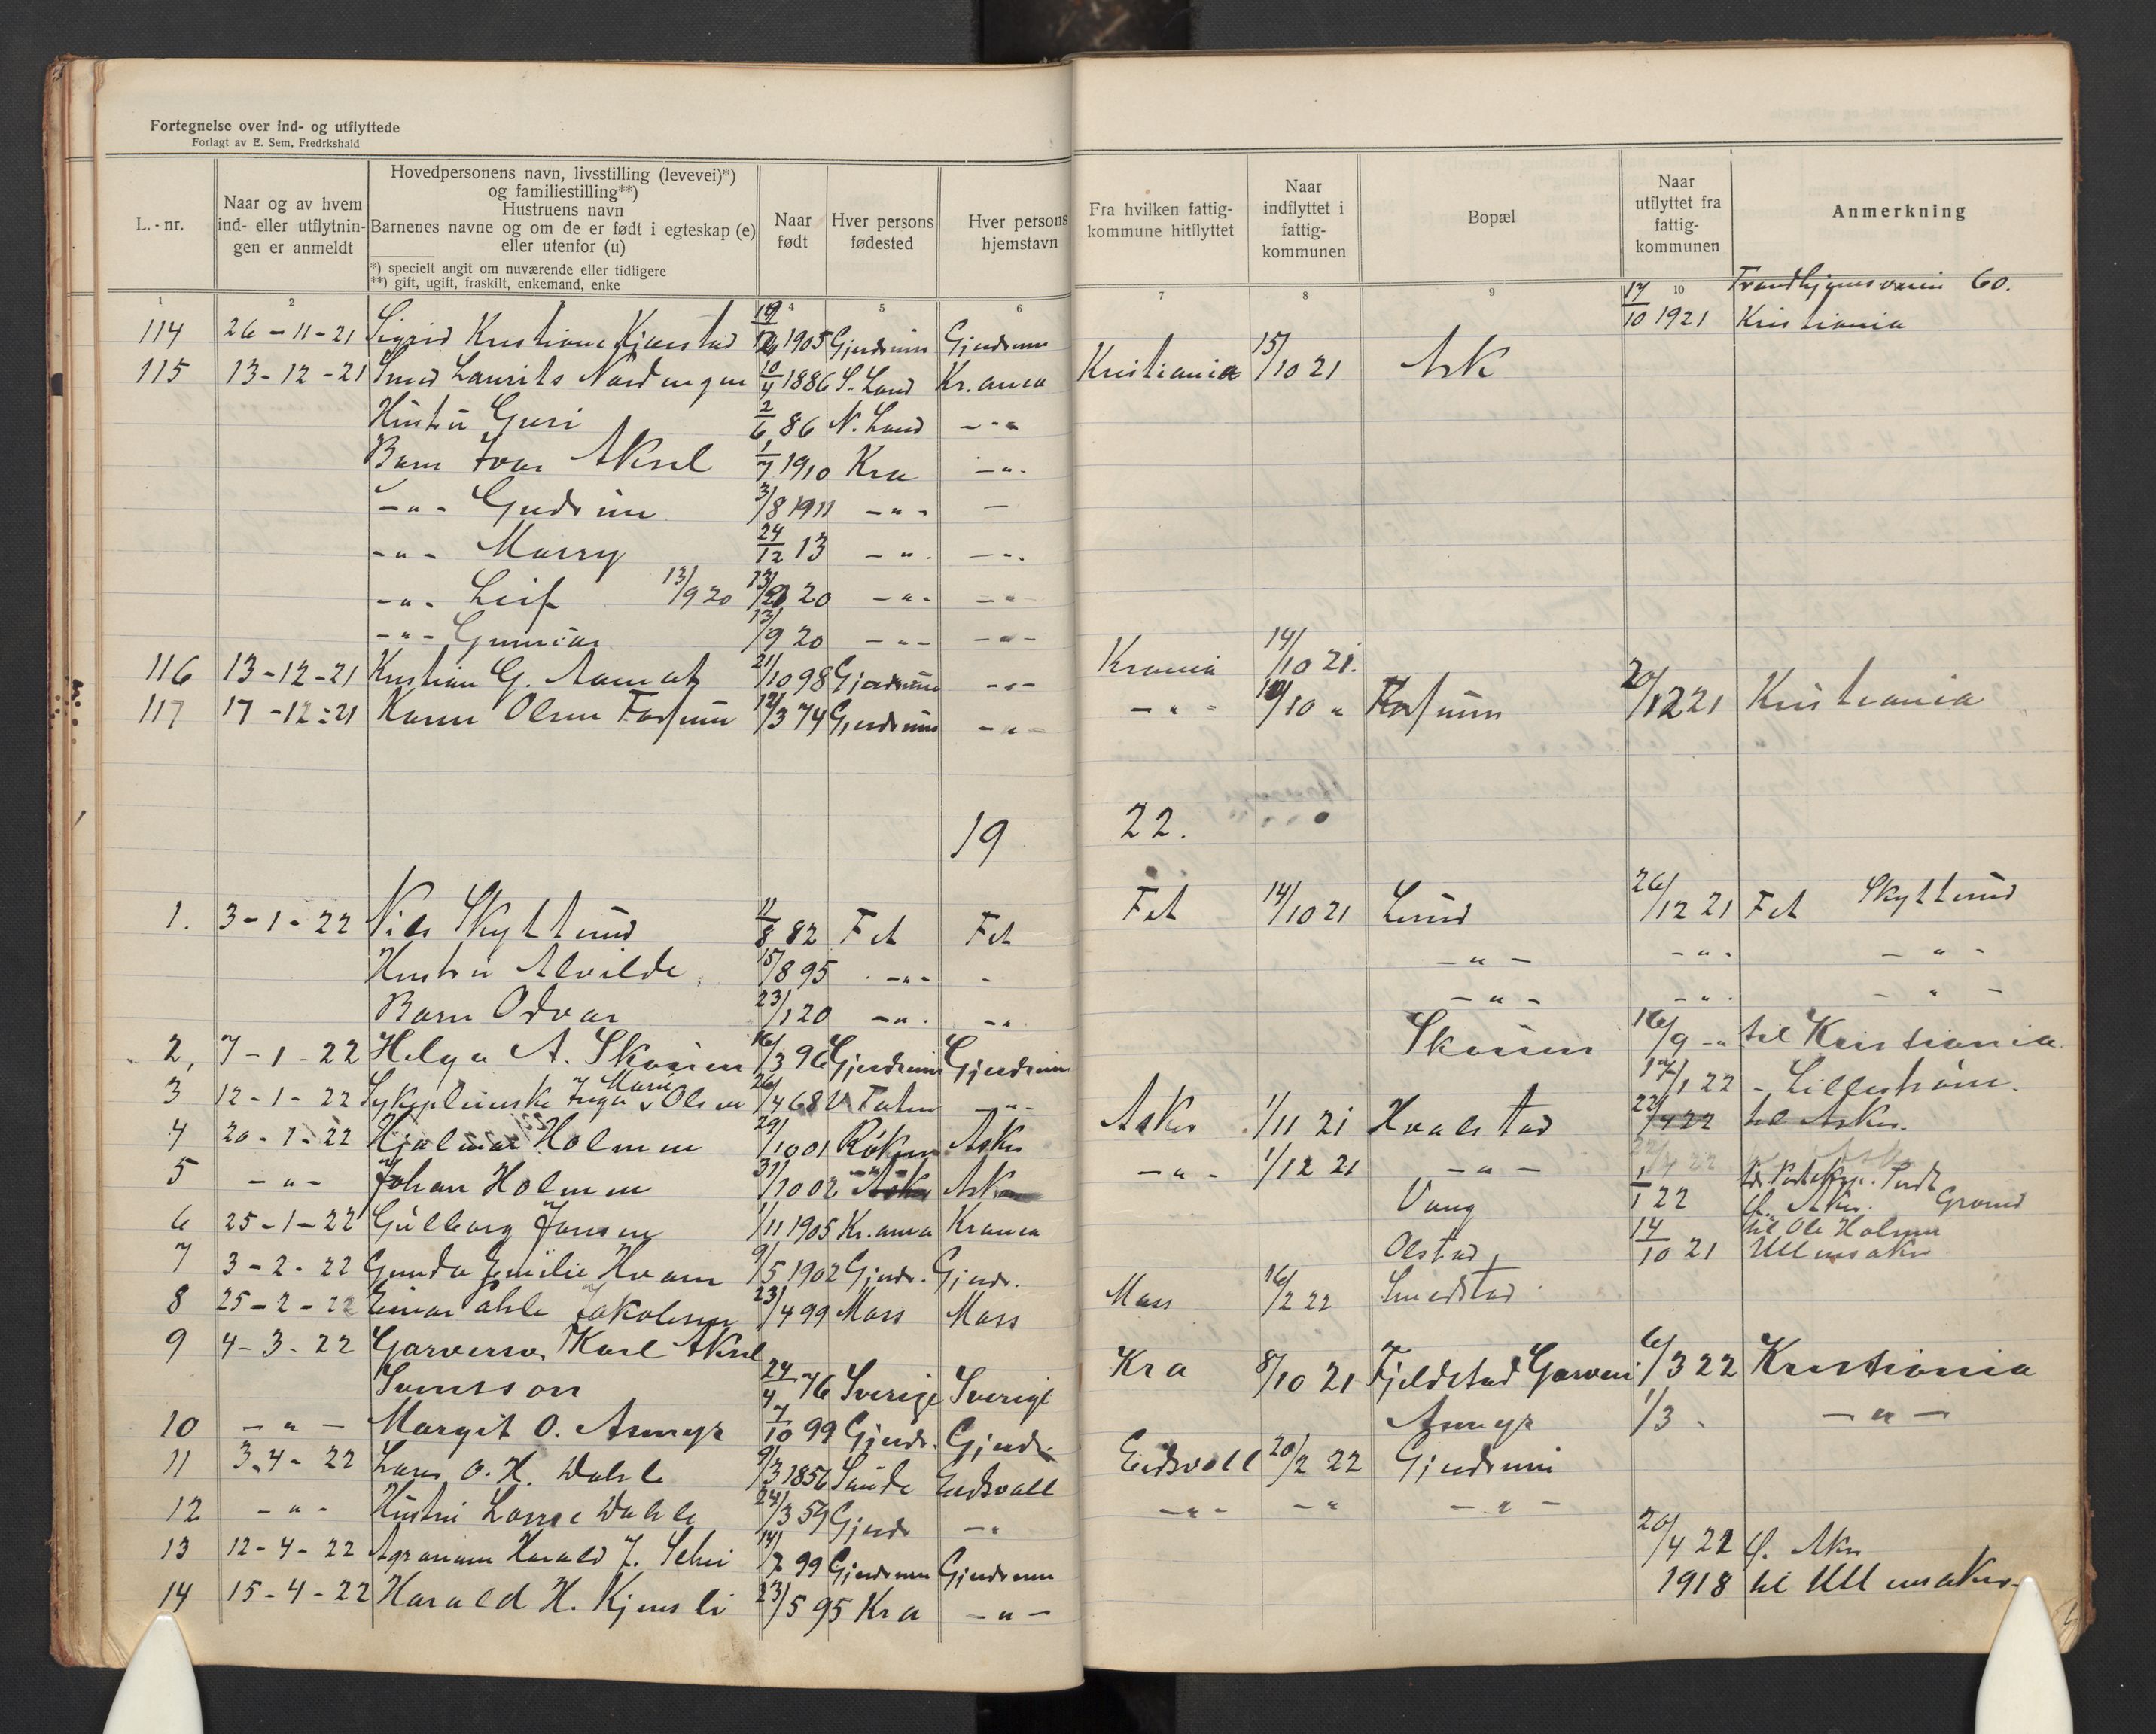 Fortegnelse over ind- og utflyttede
Forlagt av E. Sem, Fredrkshald
L.-nr.
Naar og av hvem ind- eller utflytnin- gen er anmeldt
Hovedpersonens navn, livsstilling (levevei)*)
og familiestilling**)
Hustruens navn
Barnenes navne og om de er født i egteskap (e)
eller utenfor (u)
*) specielt angit om nuværende eller tidligere
**) gift, ugift, fraskilt, enkemand, enke
Naar født
Hver persons fødested
Hver persons hjemstavn
Fra hvilken fattig- kommune hitflyttet
Naar indflyttet i fattig- kommunen
Bopæl
Naar utflyttet fra fattig- kommunen
Anmerkning
1 2 4 5 6 7 8 9 10
60.
114 26-11-21 Sigrid Kristiane Kjærstad 1905 Gjerdrum Gjerdrum 17/10 1921 Kristiania
115 13-12-21 Smed Laurits Nordengen 10/4 1886 S. Land Kr.ania Kristiania 15/10 21 Ask
Hustru Guri 2/6 86 N. Land -"-
Barn Ivar Aksel 1/7 1910 Kra -"-
-"- Gudrun 3/8 1911 -"- -
-"- Marry 24/12 13 -"- -"-
-"- Leif 13/9 20 20 -"- -"-
-"- Gunnar 13/9 20 -"- -"-
116 13-12-21 Kristian G. Aamot 21/10 98 Gjerdrum -"- Krania 14/10 21.
117 17-12-21 Karen Olsen Fossum 12/3 74 Gjerdrum -"- -"- /10 " Fossum 20/12 21 Kristiania
19 22.
1. 3-1-22 Nils Skyttund 11/8 82 Fet Fet Fet 14/10 21 Lund 26/12 21 Fet Skyttund
Hustru Alvilde 15/8 95 -"- - -"- -"- -"-
Barn Odvar 23/1 20 -"- -"- -"- -"- -"-
2, 7-1-22 Helga A. Skoien 16/3 96 Gjerdrum Gjerdrum Skoien 16/9 -" til Kristiania
3 12-1-22 Sykepleierske Inga Marie Olsen 26/4 68 V. Toten -"- 17/1 22 - Lillestrøm.
4 20-1-22 Hjalmar Holmen 29/10 01 Røken Asker Asker 1/11 21 Hvalstad 22/4 22 til Asker.
5 -"- Johan Holmen 31/10 02 -"- Asker Asker -"- 1/12 21 -"-
6 25-1-22 Gulborg Jonsen 1/11 1905 Kr.ania Krania Vang 1/1 22 Ø. Aker. Grorud
7 3-2-22 Gunda Emilie Hvam 9/5 1902 Gjerdr. Gjerdr. Olstad 14/10 21 til Ole Holmen
Ullensaker
8 25-2-22 Einar Jakobsen 23/4 99 Moss Moss Moss 16/2 22 Smedstad
9 4-3-22 Garversv. Karl Aksel
Svensson 24/4 76 Sverige Sverige Kra 8/10 21 Fjeldstad Garveri 6/3 22 Kristiania
10 -"- Margit O. Asmyr 7/10 99 Gjerdr. Gjerdr. Asmyr 1/3 - -"-
11 3-4-22 Lars O. H. Dahle 9/3 1856 Sande Eidsvoll Eidsvoll 20/2 22 Gjerdrum
12 -"- Hustru Dahle 24/3 59 Gjerdr -"- -"- -"- -"-
13 12-4-22 Agronom Harald J. 14/ 99 Gjerdrum Gjerdrum 20/4 22 Ø. Aker
14 15-4-22 Harald H. Kjensli 23/5 95 Kra -"- 1918 til Ullensaker